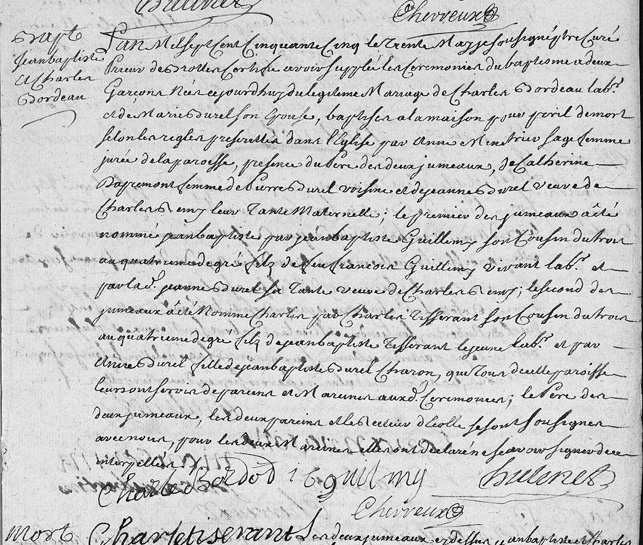 Chevreux
Bapt
Jeanbaptiste
et Charles
Bordeau
L'an Mil Sept Cent Cinquante Cinq le trente May je Soussigné ptre Curé
Prieur des Certifie avoir Supplée les Ceremonies du baptesme a deux
Garçons Nés ce jourd'huy du legitime Mariage de Charles Bordeau labr.
et de Marie Burel son Epouse, baptisés a la maison pour peril de mort
selon les regles prescrittes dans l'Eglise par Anne Menetrier sage femme
jurée de la paroesse, presence du Pere des deux jumeaux, de Catherine
femme de Pierre Burel voisine et de jeanne Burel veuve de
Charles leur Tante Maternelle; le premier des jumeaux a été
nommé jeanbaptiste par jeanbaptiste Guillemy son Cousin du trois
au quatrieme degré fils de feu francois Guillemy vivant labr. et
par lad. jeanne Burel sa Tante veuve de Charles; le second des
jumeaux a été Nommé Charles par Charles Tisserant son Cousin du trois
au quatrieme degré fils de jeanbaptiste Tisserant le jeune labr. et par
Anne Burel fille de jeanbaptiste Burel Charon, qui Tous de cette paroisse
leur ont servis de parains et Maraines auxd. Ceremonies; le Pere des
deux jumeaux, les deux parains et le Recteur d'Ecolle se sont Soussignes
avec nous, pour les deux Maraines elles ont declarées ne scavoir signer de ce
interpellées
Charle Bordod
Chevreux
mort
Charle tiserant
Les deux jumeaux jeanbaptiste et Charles